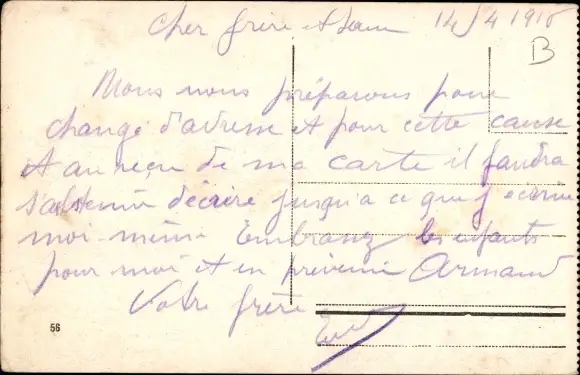 Cher frère et sœur 14/4 1918
B
Nous nous préparons pour
changé d'adresse et pour cette cause
et au reçu de ma carte il faudra
s'abstenir décrire jusqu'a ce que j'écrive
moi-même Embrassez les enfants
pour moi et en prévenir Armand
Votre frère
56